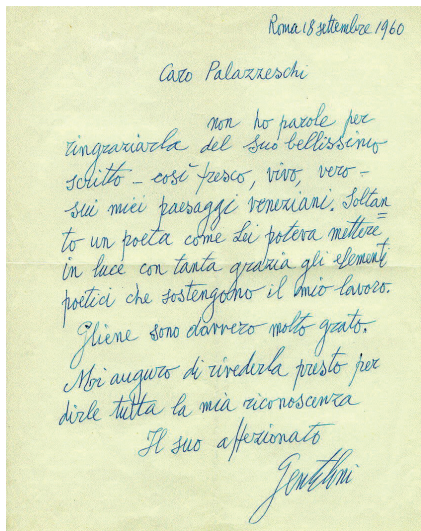 Roma 18 settembre 1960
Caro Palazzeschi
non ho parole per
ringraziarla del suo bellissimo
scritto - così fresco, vivo, vero -
sui miei paesaggi veneziani. Soltan=
to un poeta come Lei poteva mettere
in luce con tanta grazia gli elementi
poetici che sostengono il mio lavoro.
Gliene sono davvero molto grato.
Mi auguro di rivederla presto per
dirle tutta la mia riconoscenza
Il suo affezionato
Gentilini